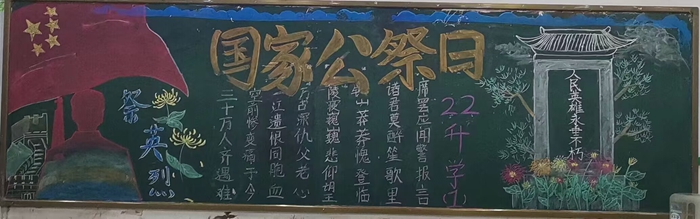 国家公祭日
祭英烈
三十万人齐遇难
空前惨变痛于今
江遗恨同胞血
万古深仇父老心
陵寝巍巍悲仰望
钟山莽莽愧登临
诸君莫醉笙歌里
席罢应闻警报音
22升学(1)
人民英雄永垂不朽